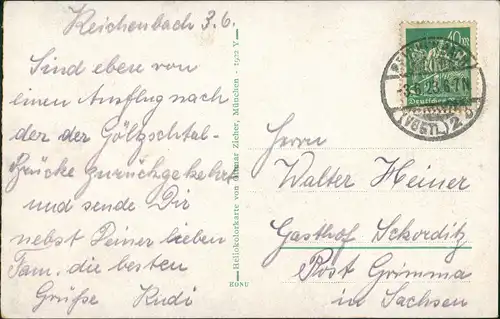 Reichenbach 3.6.
Sind eben von
einen Ausflug nach
der der Gölzschtal-
Brücke zurückgekehrt
und sende Dir
nebst Deiner lieben
Fam. die besten
Grüße Rudi
Heliokolorkarte von Ottmar Zieher, München - 1922 V
EONU
40 M
-3.6.23.6-7N
Deutsches
(VOGTL.) 2 b
Herrn
Walter Heiner
Gasthof Sckorditz
Post Grimma
in Sachsen